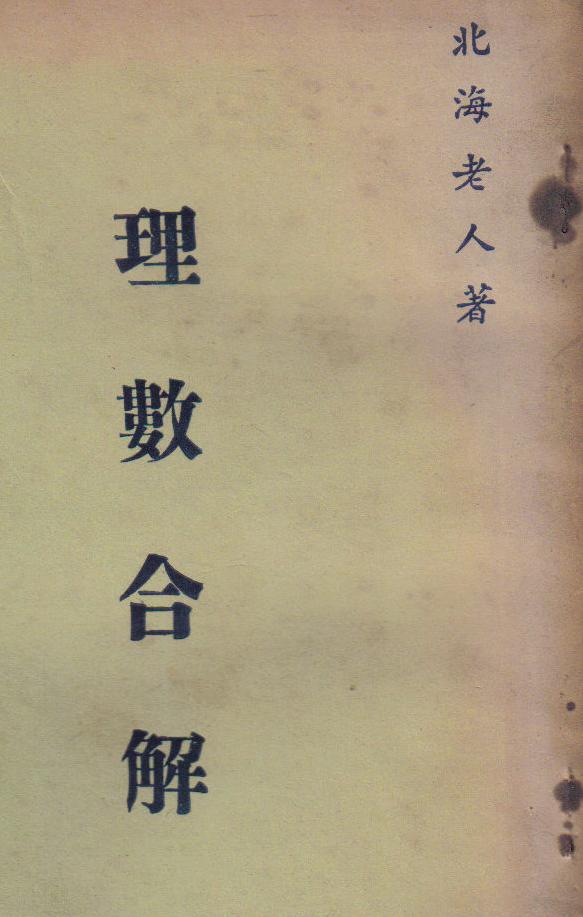 北海老人著
理數合解